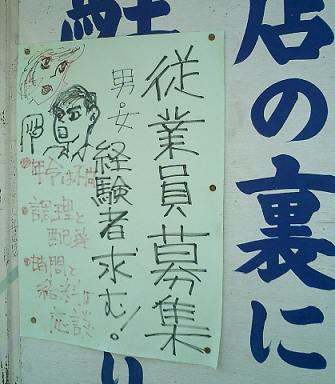 店の裏に
従業員募集
男・女
経験者求む!
年令は不問
調理と
配達
時間と
給料は
応談
り